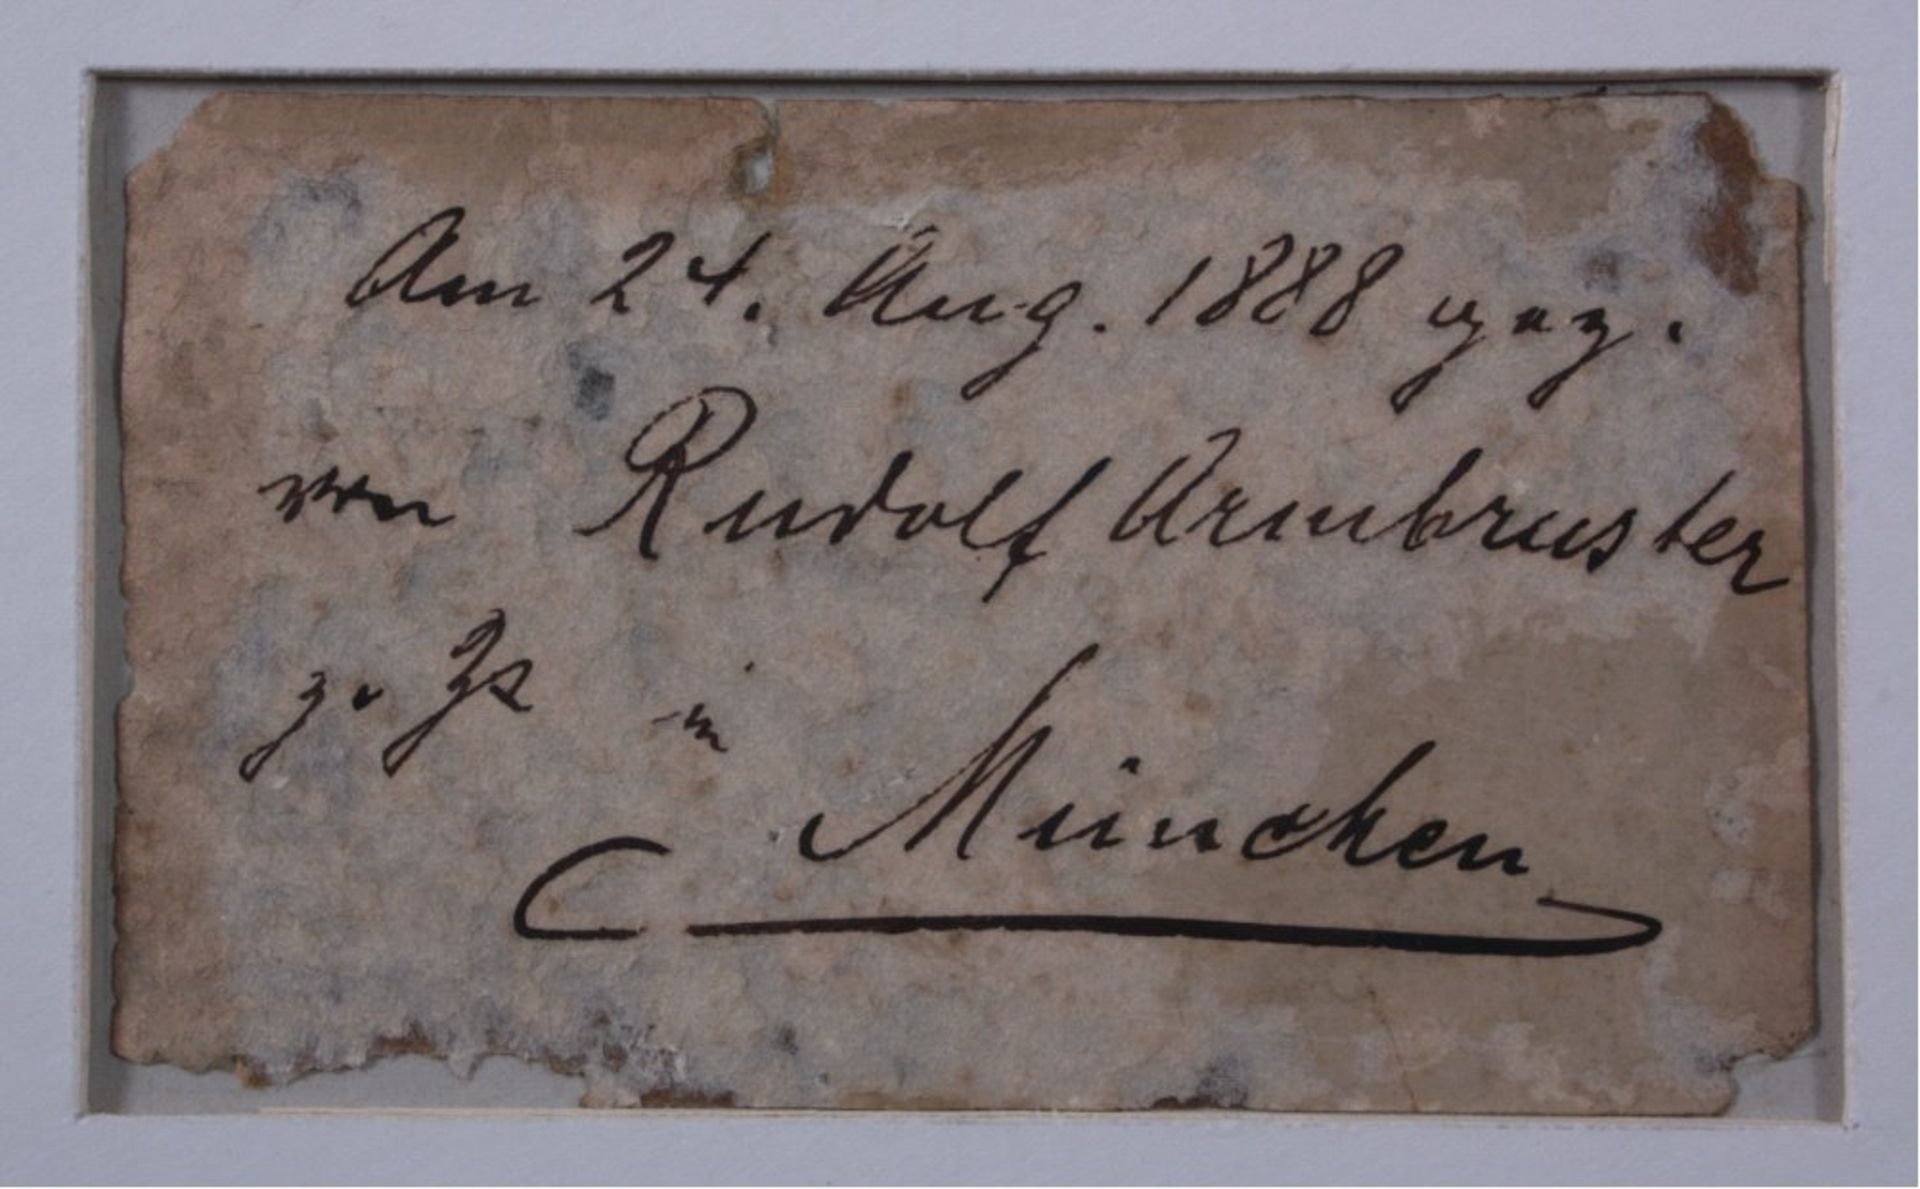 Am 24. Aug. 1888 gez.
von Rudolf Armbruster
z. Zt in
München